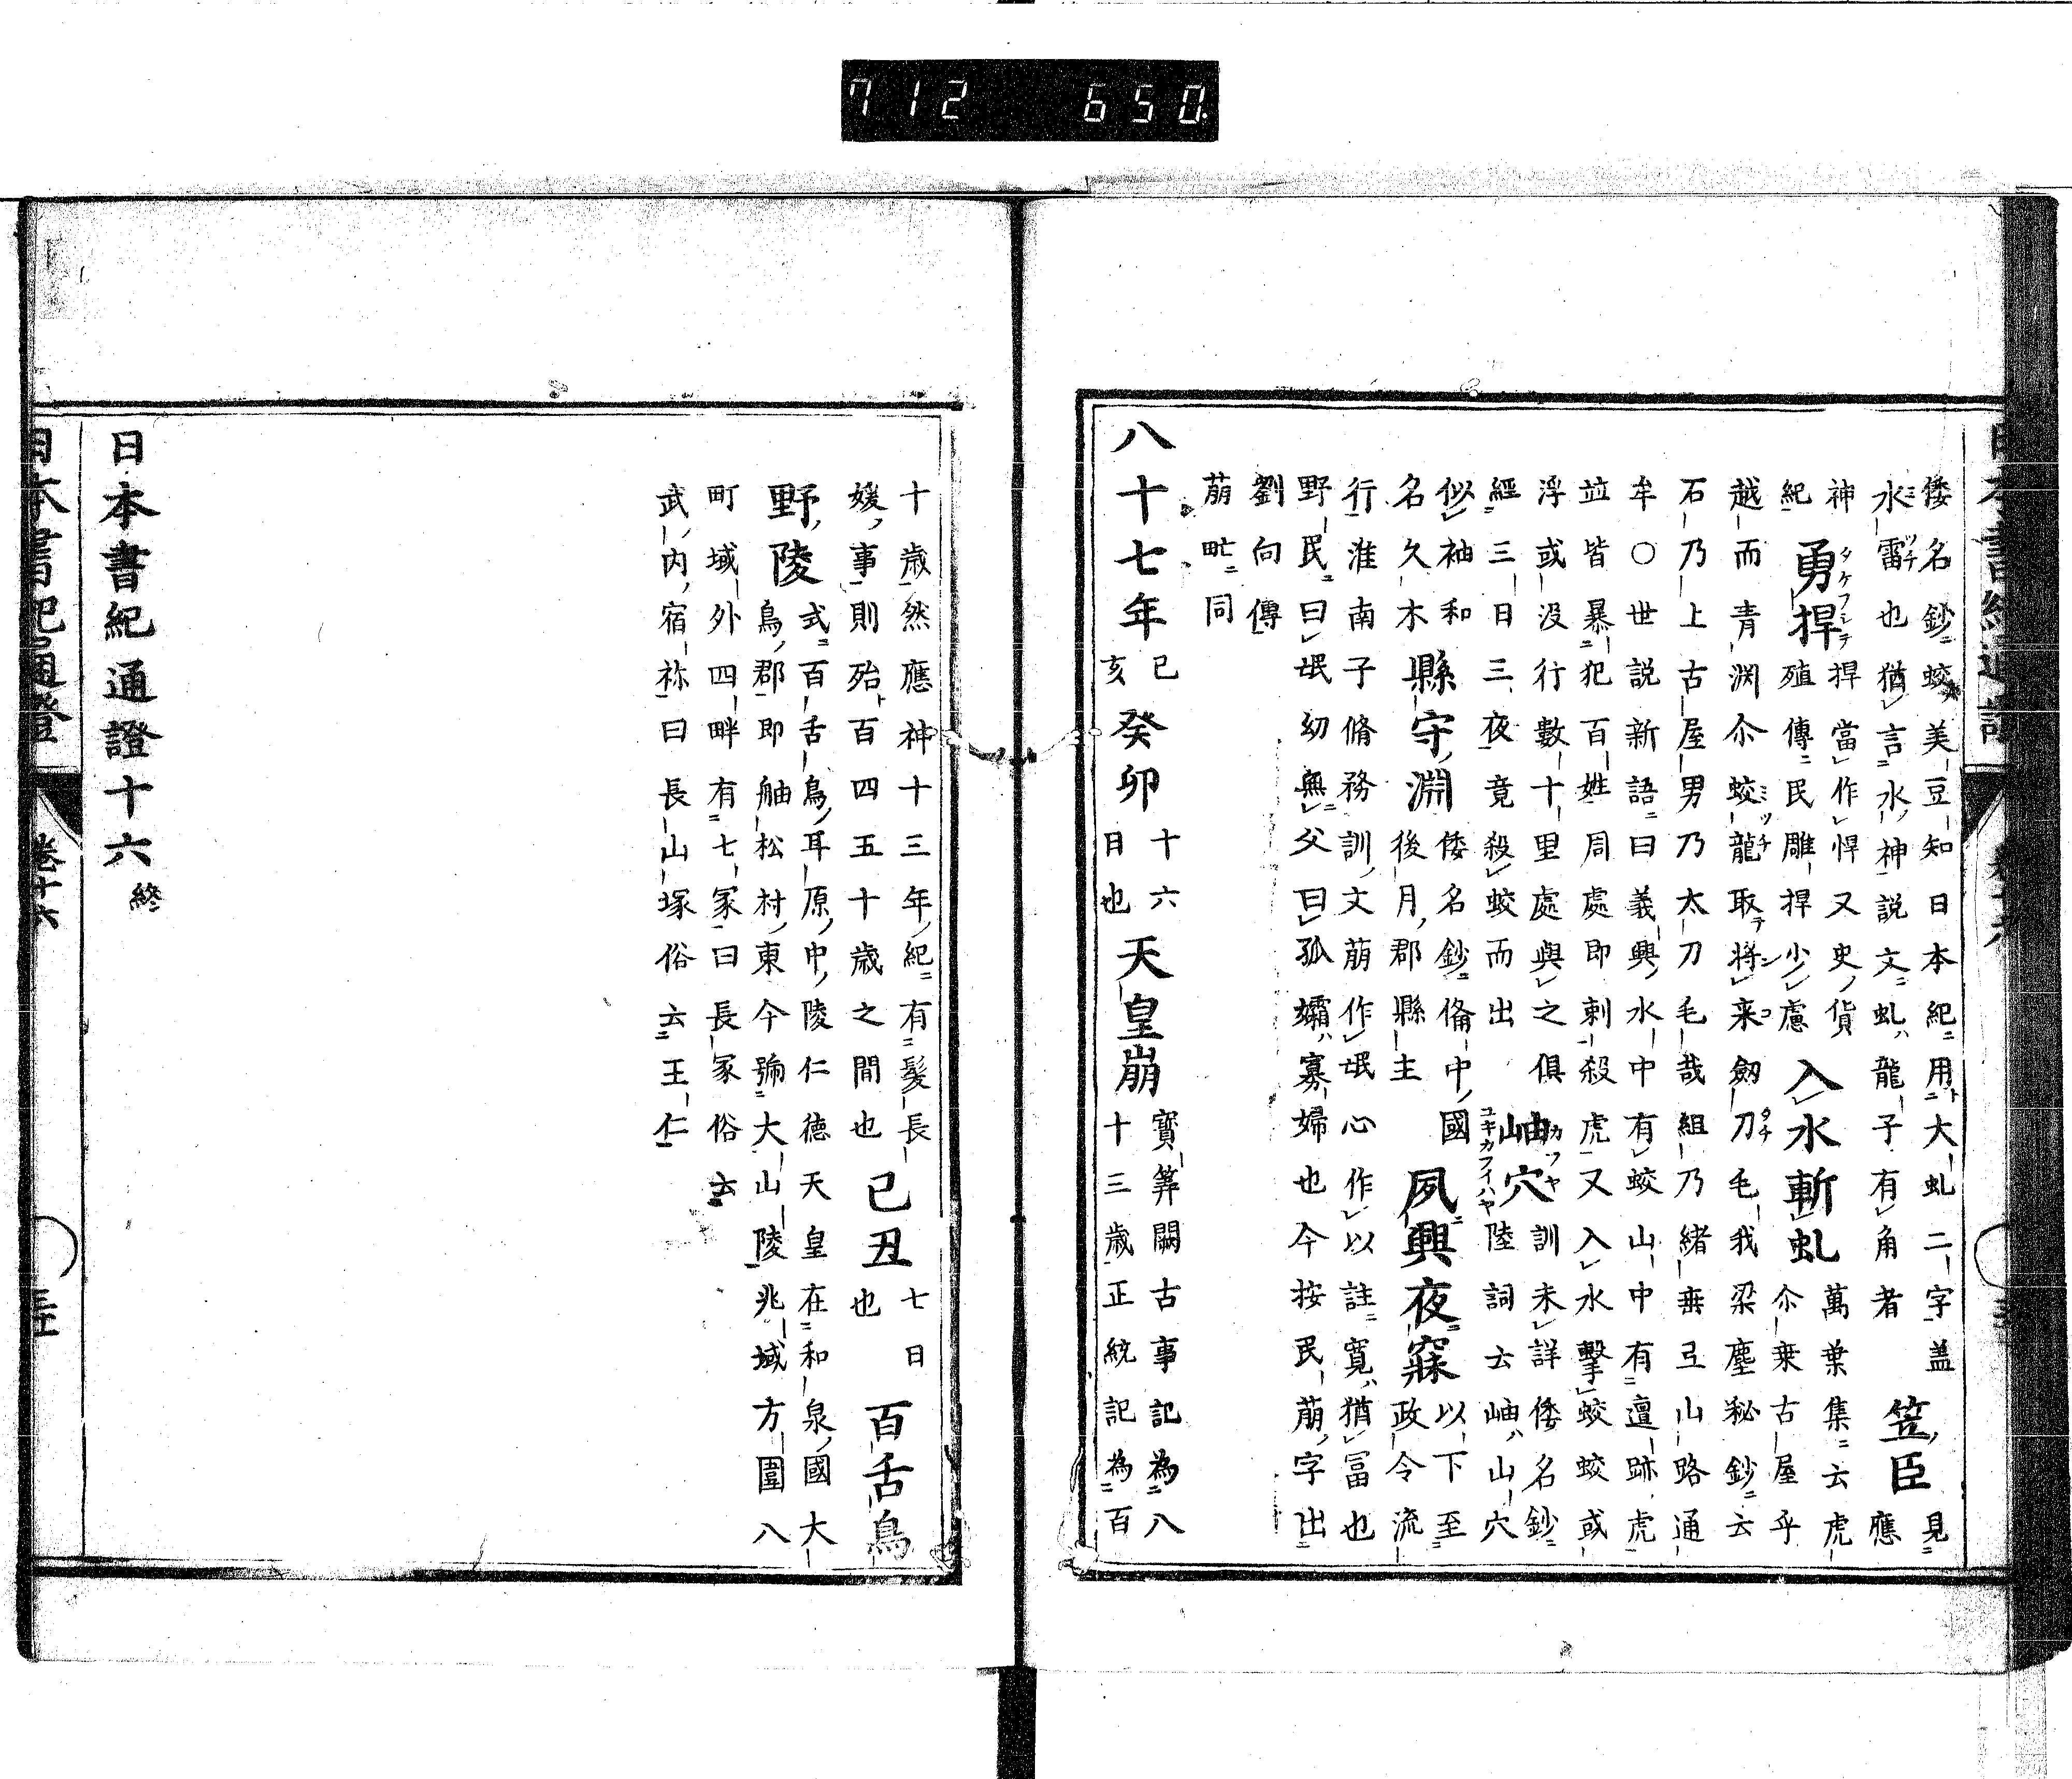 倭名鈔蛟美豆知日本紀用大虬二字盖
水雷也猶言水神説文虬龍子有角者
笠臣
見
應
神
紀
勇捍
捍當作悍又史貨
殖傳民雕捍少慮
入水斬虬
萬葉集云虎
尒乗古屋乎
越而青渊尒蛟龍取将来劔刀毛我梁塵秘鈔云
石乃上古屋男乃太刀毛哉組乃緒垂弖山路通
牟〇世説新語曰義興水中有蛟山中有邅跡虎
竝皆暴犯百姓周處即刺殺虎又入水擊蛟蛟或
浮或没行數十里處與之俱
經三日三夜竟殺蛟而出
岫穴
訓未詳倭名鈔
陸詞云岫山穴
似袖和
名久木
縣守淵
倭名鈔備中國
後月郡縣主
夙興夜寐
以下至
政令流
行淮南子脩務訓文萠作氓心作以註寛猶冨也
野民曰氓幼無父曰孤孀寡婦也今按民萠字出
劉向傳
萠甿同
八十七年
己
亥
癸卯
十六
日也
天皇崩
寳筭闕古事記為八
十三歳正統記為百
十歳然應神十三年紀有髪長
媛事則殆百四五十歳之間也
己丑
七日
也
百舌鳥
野陵
式百舌鳥耳原中陵仁德天皇在和泉國大
鳥郡即舳松村東今號大山陵兆域方圍八
町域外四畔有七冢曰長冢俗云
武内宿祢曰長山塚俗云王仁
日本書紀通證十六終
日本書紀通證
卷十六
712 650